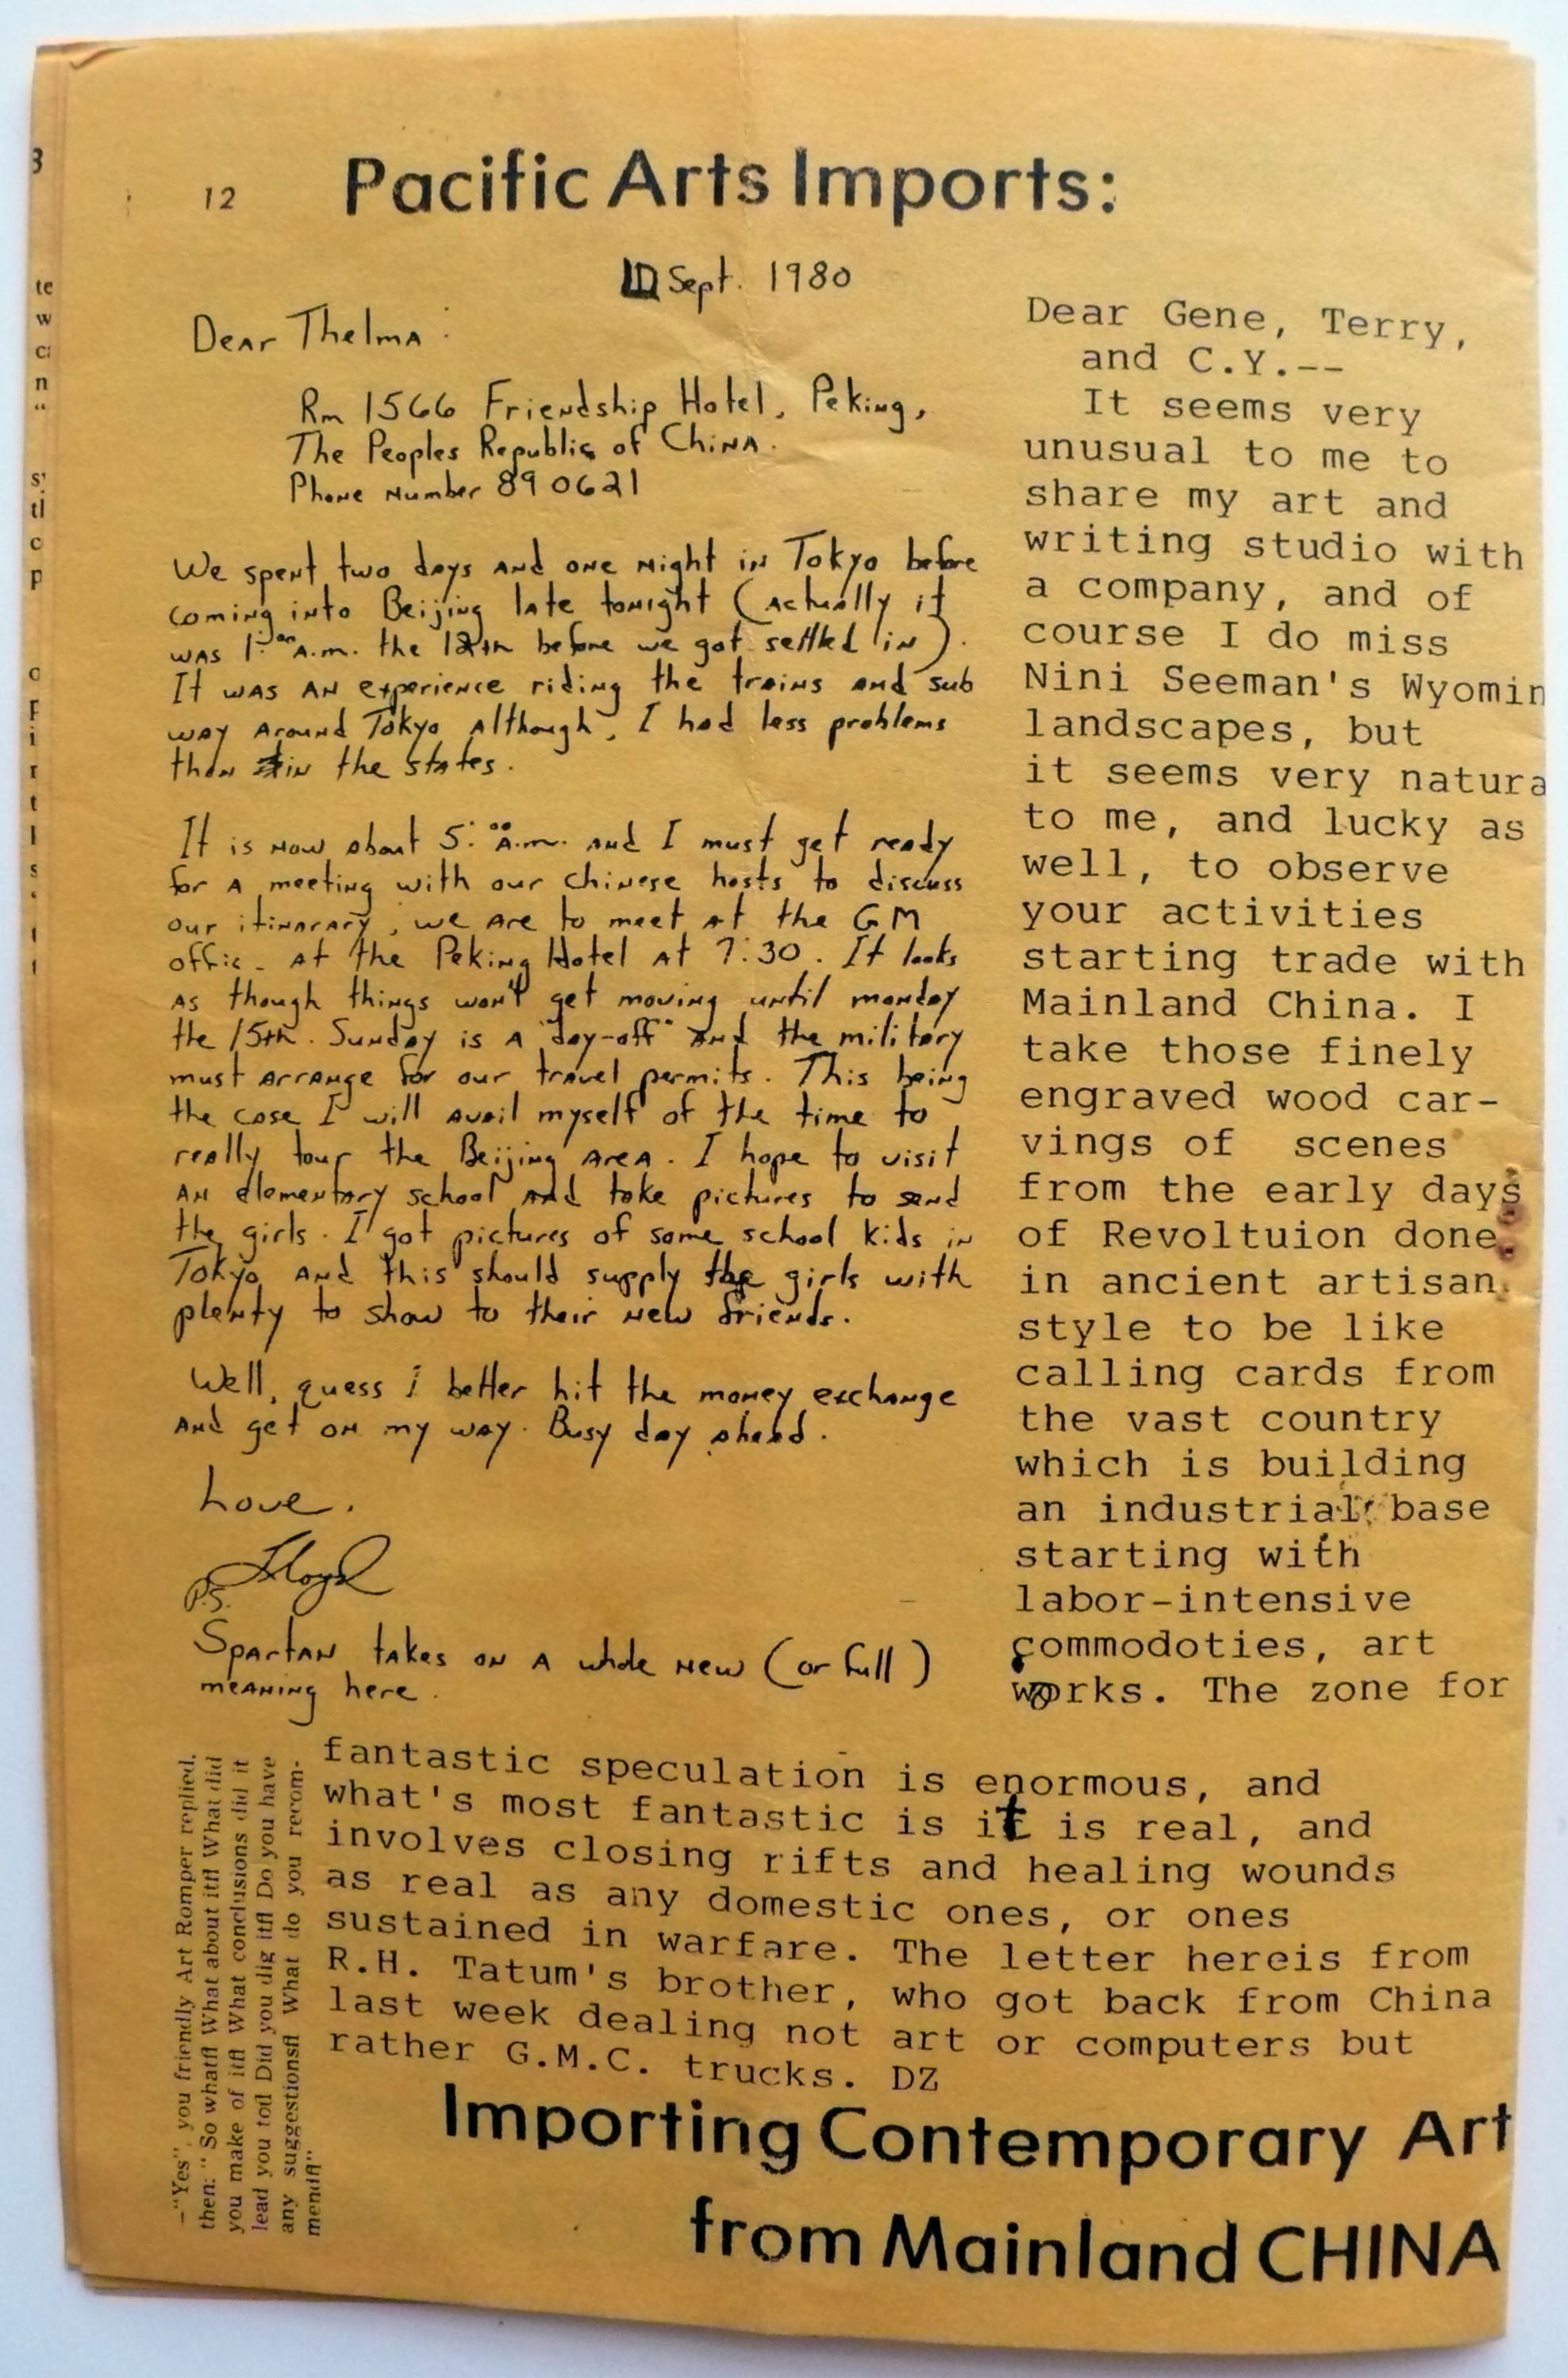 12
Pacific Arts Imports:
Sept. 1980
Dear Thelma:
Rm 1566 Friendship Hotel, Peking,
The Peoples Republic of China.
Phone Number 890621
We spent two days and one night in Tokyo before
coming into Beijing late tonight (actually it
was 1:00 A.M. the 12th before we got settled in).
It was an experience riding the trains and sub
way around Tokyo although, I had less problems
than in the states.
It is now about 5:00 A.M. and I must get ready
for a meeting with our chinese hosts to discuss
our itinarary, we are to meet at the GM
offic. at the Peking Hotel at 7:30. It looks
as though things won't get moving until monday
the 15th. Sunday is a "day-off" and the military
must arrange for our travel permits. This being
the case I will avail myself of the time to
really tour the Beijing area. I hope to visit
an elementary school and take pictures to send
the girls. I got pictures of some school kids in
Tokyo and this should supply the girls with
plenty to show to their new friends.
Well, guess i better hit the money exchange
and get on my way. Busy day ahead.
Love,
Lloyd
P.S.
Spartan takes on a whole new (or full)
meaning here.
Dear Gene, Terry,
and C.Y.--
It seems very
unusual to me to
share my art and
writing studio with
a company, and of
course I do miss
Nini Seeman's Wyomin
landscapes, but
it seems very natura
to me, and lucky as
well, to observe
your activities
starting trade with
Mainland China. I
take those finely
engraved wood car-
vings of scenes
from the early days
of Revoltuion done
in ancient artisan
style to be like
calling cards from
the vast country
which is building
an industrial base
starting with
labor-intensive
commodoties, art
works. The zone for
fantastic speculation is enormous, and
what's most fantastic is it is real, and
involves closing rifts and healing wounds
as real as any domestic ones, or ones
sustained in warfare. The letter hereis from
R.H. Tatum's brother, who got back from China
last week dealing not art or computers but
rather G.M.C. trucks. DZ
—"Yes", you friendly Art Romper replied,
then: "So whatfl What about itfl What did
you make of itfl What conclusions did it
lead you tofl Did you dig itfl Do you have
any suggestionsfl What do you recom-
mendfl"
Importing Contemporary Art
from Mainland CHINA